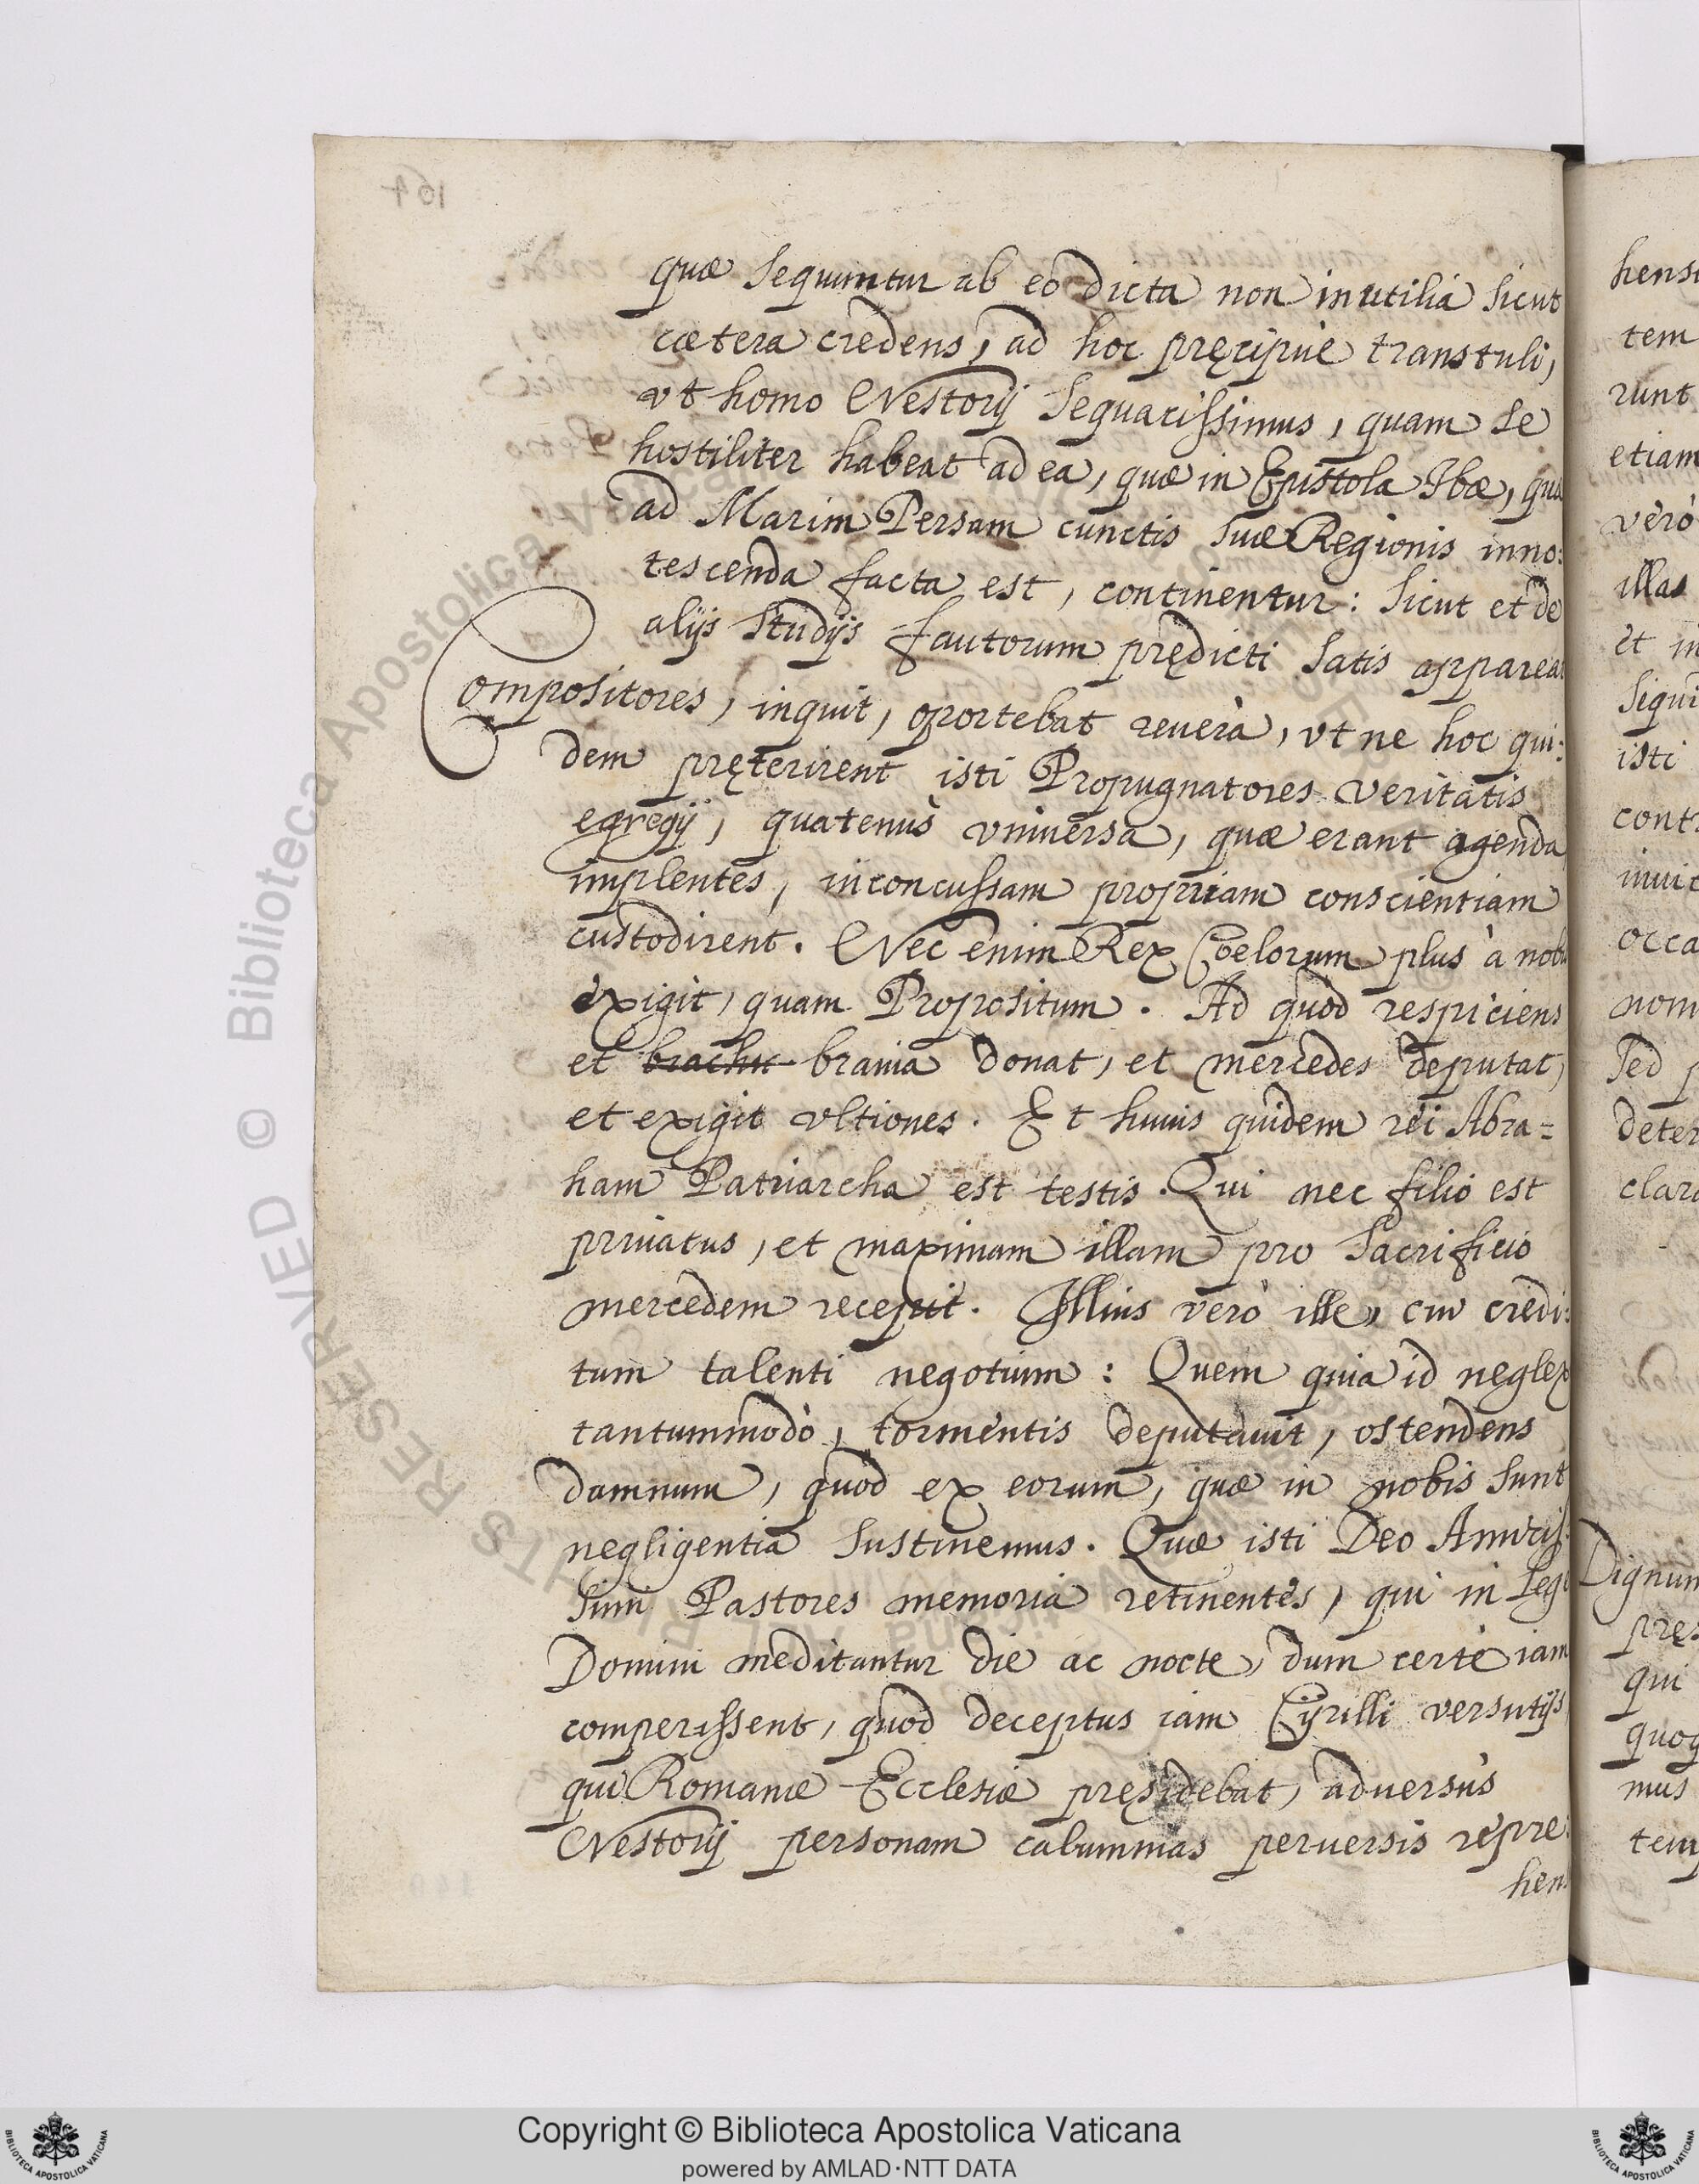 quæ sequuntur ab eo dicta non inutilia sicut
cætera credens, ad hoc pręcipuè transtuli,
vt homo Nestorij sequacissimus, quam se
hostiliter habeat ad ea, quæ in Epistola Ibæ, quæ
ad Marim Persam cunctis suæ Regionis inno:
tescenda facta est, continentur: sicut et de
alijs studijs fautorum prędicti satis appareat
Compositores, inquit, oportebat reuerà, vt ne hoc qui:
dem pręterirent isti Propugnatores veritatis
egregij, quatenùs vniuersa, quæ erant agenda
implentes, inconcussam propriam conscientiam
custodirent. Nec enim Rex Coelorum plus à nobis
exigit, quam Propositum. Ad quod respiciens
et brachu brauia donat, et mercedes deputat,
et exigit vltiones. Et huius quidem rei Abra=
ham Patriarcha est testis. Qui nec filio est
priuatus, et maximam illam pro sacrificio
mercedem recepit. Illius verò ille, cui credi:
tum talenti negotium: Quem quia id neglex
tantummodò, tormentis deputauit, ostendens
damnum, quod ex eorum, quæ in nobis sunt
negligentia sustinemus. Quæ isti Deo Amicis:
simi Pastores memoria retinentes, qui in Lege
Domini meditantur die ac nocte, dum certè iam
comperissent, quod deceptus iam Cyrilli versutijs,
qui Romanæ Ecclesiæ pręsidebat, aduersùs
Nestorij personam calumnias peruersis repre:
hen
hens
tem
runt
etiam
verò
illas
et in
siqui
isti
cont
inuic
occa
nom
sed p
deter
clara
Dignum
pręs
qui
quoq
mus
tem
164
© Biblioteca Apostolica Vaticana
ALL RIGHTS RESERVED
Copyright © Biblioteca Apostolica Vaticana
powered by AMLAD·NTT DATA
BIBLIOTECA APOSTOLICA VATICANA
BIBLIOTECA APOSTOLICA VATICANA